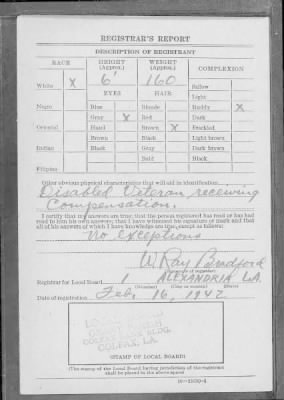 REGISTRAR'S REPORT
DESCRIPTION OF REGISTRANT
RACE HEIGHT (Approx.) WEIGHT (Approx.) COMPLEXION
White X 6' 160 Sallow
EYES HAIR Light
Negro Blue Blonde Ruddy X
Gray X Red Dark
Oriental Hazel Brown X Freckled
Brown Black Light brown
Indian Black Gray Dark brown
Bald Black
Filipino
Other obvious physical characteristics that will aid in identification
Disabled Veteran receiving
Compensation.
I certify that my answers are true; that the person registered has read or has had
read to him his own answers; that I have witnessed his signature or mark and that
all of his answers of which I have knowledge are true, except as follows:
No exceptions
W. Ray Bradford
(Signature of registrar)
Registrar for Local Board 1 ALEXANDRIA LA.
(Number) (City or county) (State)
Date of registration Feb. 16, 1942
COLFAX, LA.
(STAMP OF LOCAL BOARD)
(The stamp of the Local Board having jurisdiction of the registrant
shall be placed in the above space)